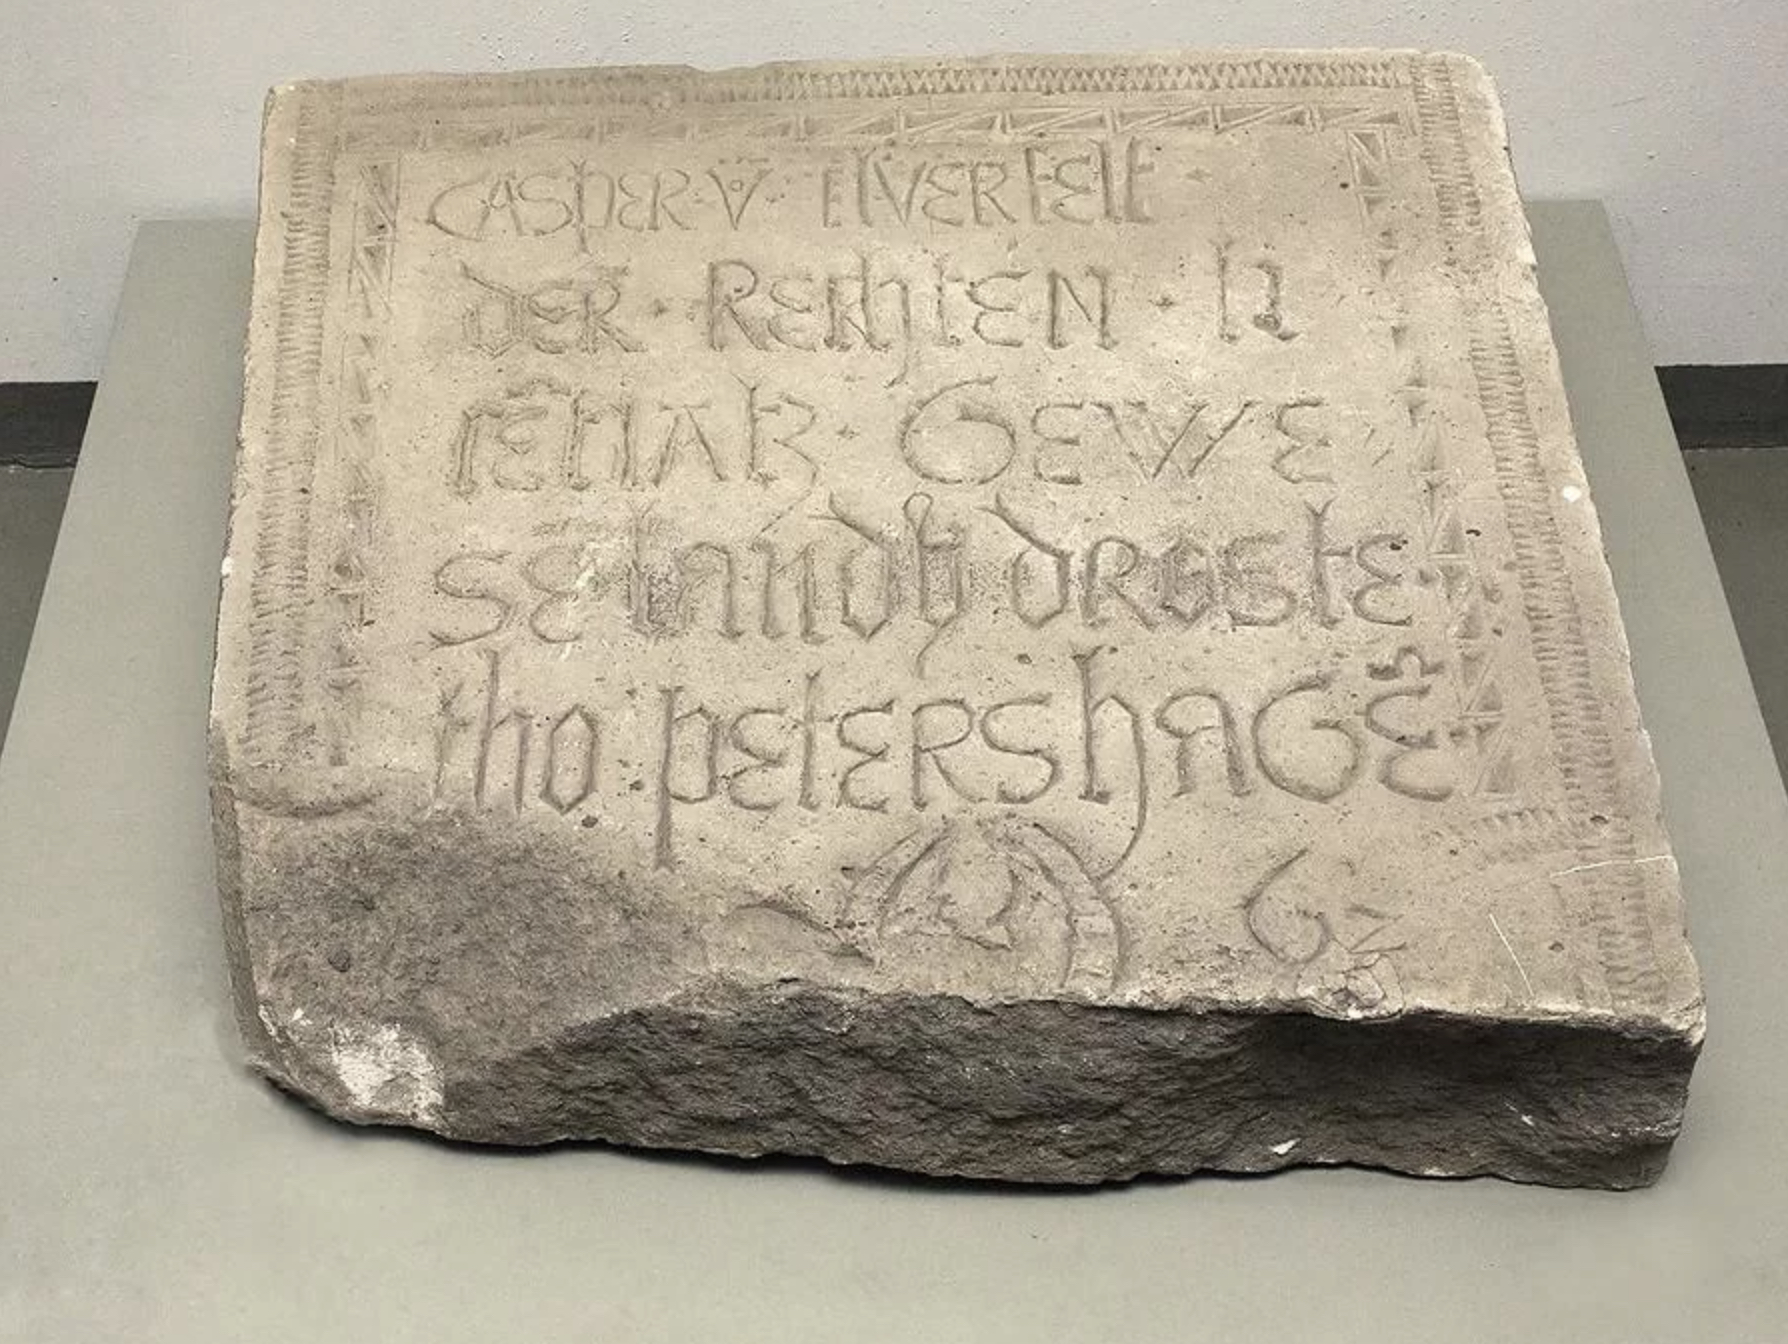 CASPER · V̊ · ElVERFElt ·
DER · RECHTEN · LI
CĒTIAT9 · GEWE
SE LANDTDROSTE
tho PETERSHAGĒ
62